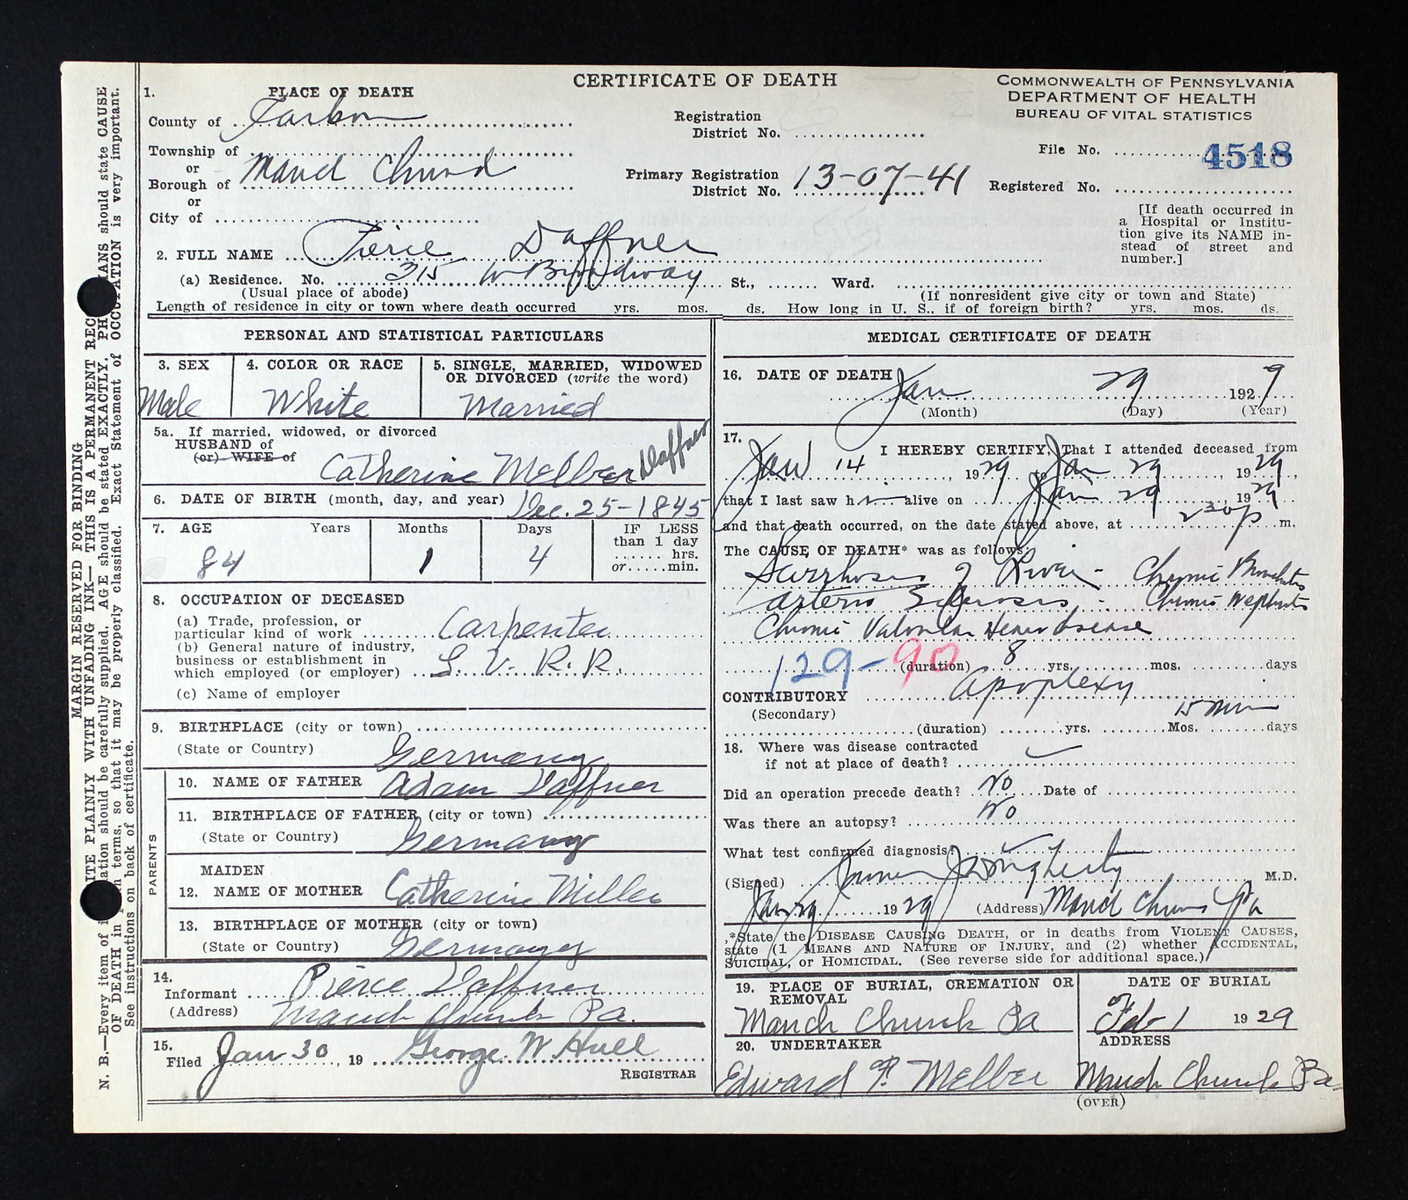 CERTIFICATE OF DEATH
COMMONWEALTH OF PENNSYLVANIA
DEPARTMENT OF HEALTH
BUREAU OF VITAL STATISTICS
1. PLACE OF DEATH
County of Carbon
Township of
or
Borough of Mauch Chunk
or
City of
Registration
District No.
Primary Registration
District No. 13-07-41
File No. 4518
Registered No.
[If death occurred in
a Hospital or Institu-
tion give its NAME in-
stead of street and
number.]
2. FULL NAME Pierce Daffner
(a) Residence. No. 315 W Broadway St., Ward.
(Usual place of abode)
(If nonresident give city or town and State)
Length of residence in city or town where death occurred yrs. mos. ds. How long in U. S., if of foreign birth? yrs. mos. ds.
PERSONAL AND STATISTICAL PARTICULARS
3. SEX
Male
4. COLOR OR RACE
White
5. SINGLE, MARRIED, WIDOWED
OR DIVORCED (write the word)
Married
5a. If married, widowed, or divorced
HUSBAND of
(or) WIFE of
Catherine Melber Daffner
6. DATE OF BIRTH (month, day, and year) Dec. 25-1845
7. AGE Years Months Days IF LESS
than 1 day
hrs.
or min.
84 1 4
8. OCCUPATION OF DECEASED
(a) Trade, profession, or
particular kind of work Carpenter
(b) General nature of industry,
business or establishment in
which employed (or employer) L. V. R. R.
(c) Name of employer
9. BIRTHPLACE (city or town)
(State or Country) Germany
PARENTS
10. NAME OF FATHER Adam Daffner
11. BIRTHPLACE OF FATHER (city or town)
(State or Country) Germany
12. MAIDEN
NAME OF MOTHER Catherine Miller
13. BIRTHPLACE OF MOTHER (city or town)
(State or Country) Germany
14.
Informant Pierce Daffner
(Address) Mauch Chunk Pa.
15.
Filed Jan 30, 19 George W Hull
REGISTRAR
MEDICAL CERTIFICATE OF DEATH
16. DATE OF DEATH
Jan 29 1929
(Month) (Day) (Year)
17.
I HEREBY CERTIFY, That I attended deceased from
Jan 14, 1929 to Jan 29, 1929,
that I last saw h i alive on Jan 29, 1929
and that death occurred, on the date stated above, at 230 p m.
The CAUSE OF DEATH* was as follows:
of Liver - Chronic Bronchitis
Arterio Sclerosis - Chronic Nephritis
Chronic Valvular Heart Disease
129-90
(duration) 8 yrs. mos. days
CONTRIBUTORY Apoplexy
(Secondary)
15 min
(duration) yrs. Mos. days
18. Where was disease contracted
if not at place of death?
Did an operation precede death? No Date of
Was there an autopsy? No
What test confirmed diagnosis?
(Signed) James J Dougherty M.D.
Jan 29 1929 (Address) Mauch Chunk Pa
*State the DISEASE CAUSING DEATH, or in deaths from VIOLENT CAUSES,
state (1 MEANS AND NATURE OF INJURY, and (2) whether ACCIDENTAL,
SUICIDAL, or HOMICIDAL. (See reverse side for additional space.)
19. PLACE OF BURIAL, CREMATION OR
REMOVAL
Mauch Chunk Pa
DATE OF BURIAL
Feb 1 1929
20. UNDERTAKER
Edward F. Melber
ADDRESS
Mauch Chunk Pa.
(OVER)
MARGIN RESERVED FOR BINDING
ITE PLAINLY WITH UNFADING INK— THIS IS A PERMANENT REC
N. B.—Every item of i ation should be carefully supplied. AGE should be stated EXACTLY. PH IANS should state CAUSE
OF DEATH in p n terms, so that it may be properly classified. Exact Statement of OCCUPATION is very important.
See instructions on back of certificate.